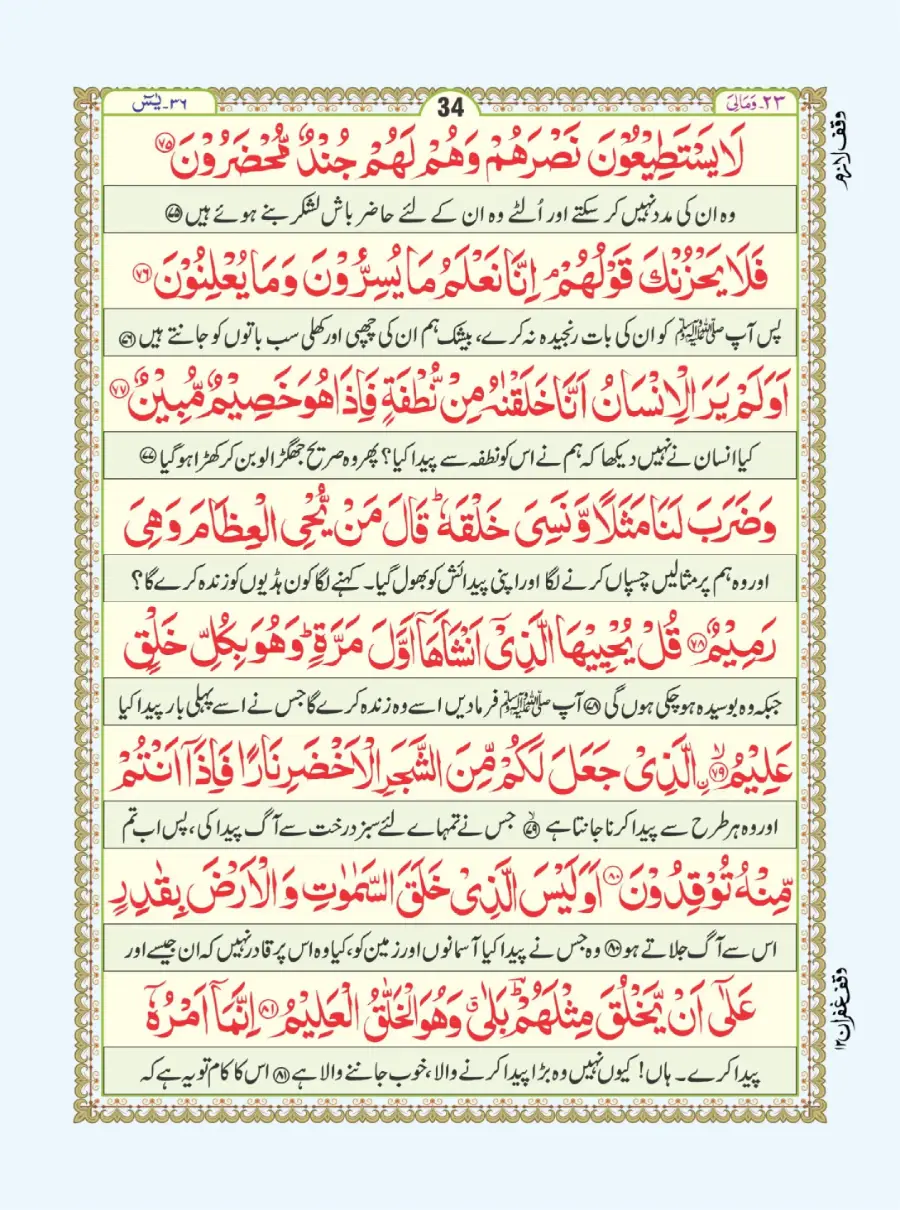 ۲۳۔ وَمَالِیَ
34
۳۶۔ یٰسٓ
لَا یَسْتَطِیْعُوْنَ نَصْرَهُمْ وَهُمْ لَهُمْ جُنْدٌ مُّحْضَرُوْنَ ﴿۷۵﴾
وہ ان کی مدد نہیں کر سکتے اور اُلٹے وہ ان کے لئے حاضر باش لشکر بنے ہوئے ہیں ﴿۷۵﴾
فَلَا یَحْزُنْكَ قَوْلُهُمْ ۘ اِنَّا نَعْلَمُ مَا یُسِرُّوْنَ وَمَا یُعْلِنُوْنَ ﴿۷۶﴾
پس آپ ﷺ کو ان کی بات رنجیدہ نہ کرے، بیشک ہم ان کی چھپی اور کھلی سب باتوں کو جانتے ہیں ﴿۷۶﴾
اَوَلَمْ یَرَ الْاِنْسَانُ اَنَّا خَلَقْنٰهُ مِنْ نُّطْفَةٍ فَاِذَا هُوَ خَصِیْمٌ مُّبِیْنٌ ﴿۷۷﴾
کیا انسان نے نہیں دیکھا کہ ہم نے اس کو نطفہ سے پیدا کیا؟ پھر وہ صریح جھگڑالو بن کر کھڑا ہو گیا ﴿۷۷﴾
وَضَرَبَ لَنَا مَثَلًا وَّنَسِیَ خَلْقَهٗ ؕ قَالَ مَنْ یُّحْیِ الْعِظَامَ وَهِیَ
اور وہ ہم پر مثالیں چسپاں کرنے لگا اور اپنی پیدائش کو بھول گیا۔ کہنے لگا کون ہڈیوں کو زندہ کرے گا؟
رَمِیْمٌ ﴿۷۸﴾ قُلْ یُحْیِیْهَا الَّذِیْۤ اَنْشَاَهَاۤ اَوَّلَ مَرَّةٍ ؕ وَهُوَ بِكُلِّ خَلْقٍ
جبکہ وہ بوسیدہ ہو چکی ہوں گی ﴿۷۸﴾ آپ ﷺ فرمادیں اسے وہ زندہ کرے گا جس نے اسے پہلی بار پیدا کیا
عَلِیْمُ ۙ﴿۷۹﴾ ِۨالَّذِیْ جَعَلَ لَكُمْ مِّنَ الشَّجَرِ الْاَخْضَرِ نَارًا فَاِذَاۤ اَنْتُمْ
اور وہ ہر طرح سے پیدا کرنا جانتا ہے ﴿۷۹﴾ جس نے تمہاے لئے سبز درخت سے آگ پیدا کی، پس اب تم
مِّنْهُ تُوْقِدُوْنَ ﴿۸۰﴾ اَوَلَیْسَ الَّذِیْ خَلَقَ السَّمٰوٰتِ وَالْاَرْضَ بِقٰدِرٍ
اس سے آگ جلاتے ہو ﴿۸۰﴾ وہ جس نے پیدا کیا آسمانوں اور زمین کو، کیا وہ اس پر قادر نہیں کہ ان جیسے اور
عَلٰۤى اَنْ یَّخْلُقَ مِثْلَهُمْ ؕؔ بَلٰى ۗ وَهُوَ الْخَلّٰقُ الْعَلِیْمُ ﴿۸۱﴾ اِنَّمَاۤ اَمْرُهٗۤ
پیدا کرے۔ ہاں! کیوں نہیں وہ بڑا پیدا کرنے والا، خوب جاننے والا ہے ﴿۸۱﴾ اس کا کام تو یہ ہے کہ
وقف لازم
وقف غفران ۱۲